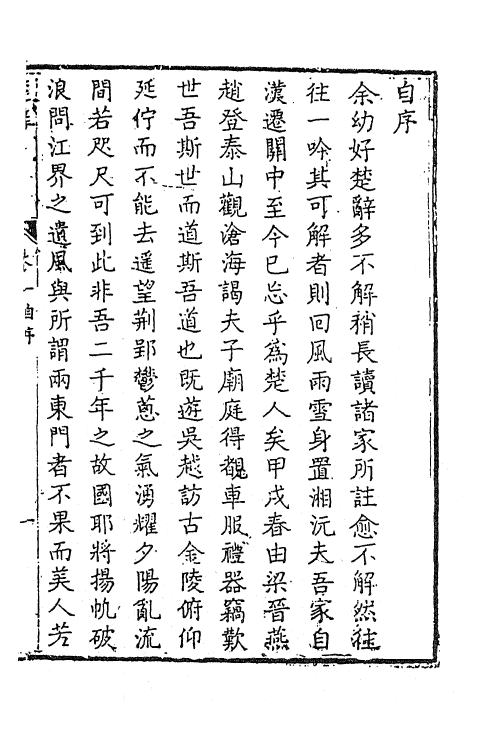 自序
余幼好楚辭多不解稍長讀諸家所註愈不解然往
往一吟其可解者則回風雨雪身置湘沅夫吾家自
漢遷關中至今已忘乎爲楚人矣甲戌春由梁晉燕
趙登泰山觀滄海謁夫子廟庭得覩車服禮器竊歎
世吾斯世而道斯吾道也既遊吳越訪古金陵俯仰
延佇而不能去遥望荆郢鬱蔥之氣湧耀夕陽亂流
間若咫尺可到此非吾二千年之故國耶將揚帆破
浪問江界之遺風與所謂兩東門者不果而美人若
卷一自序
一